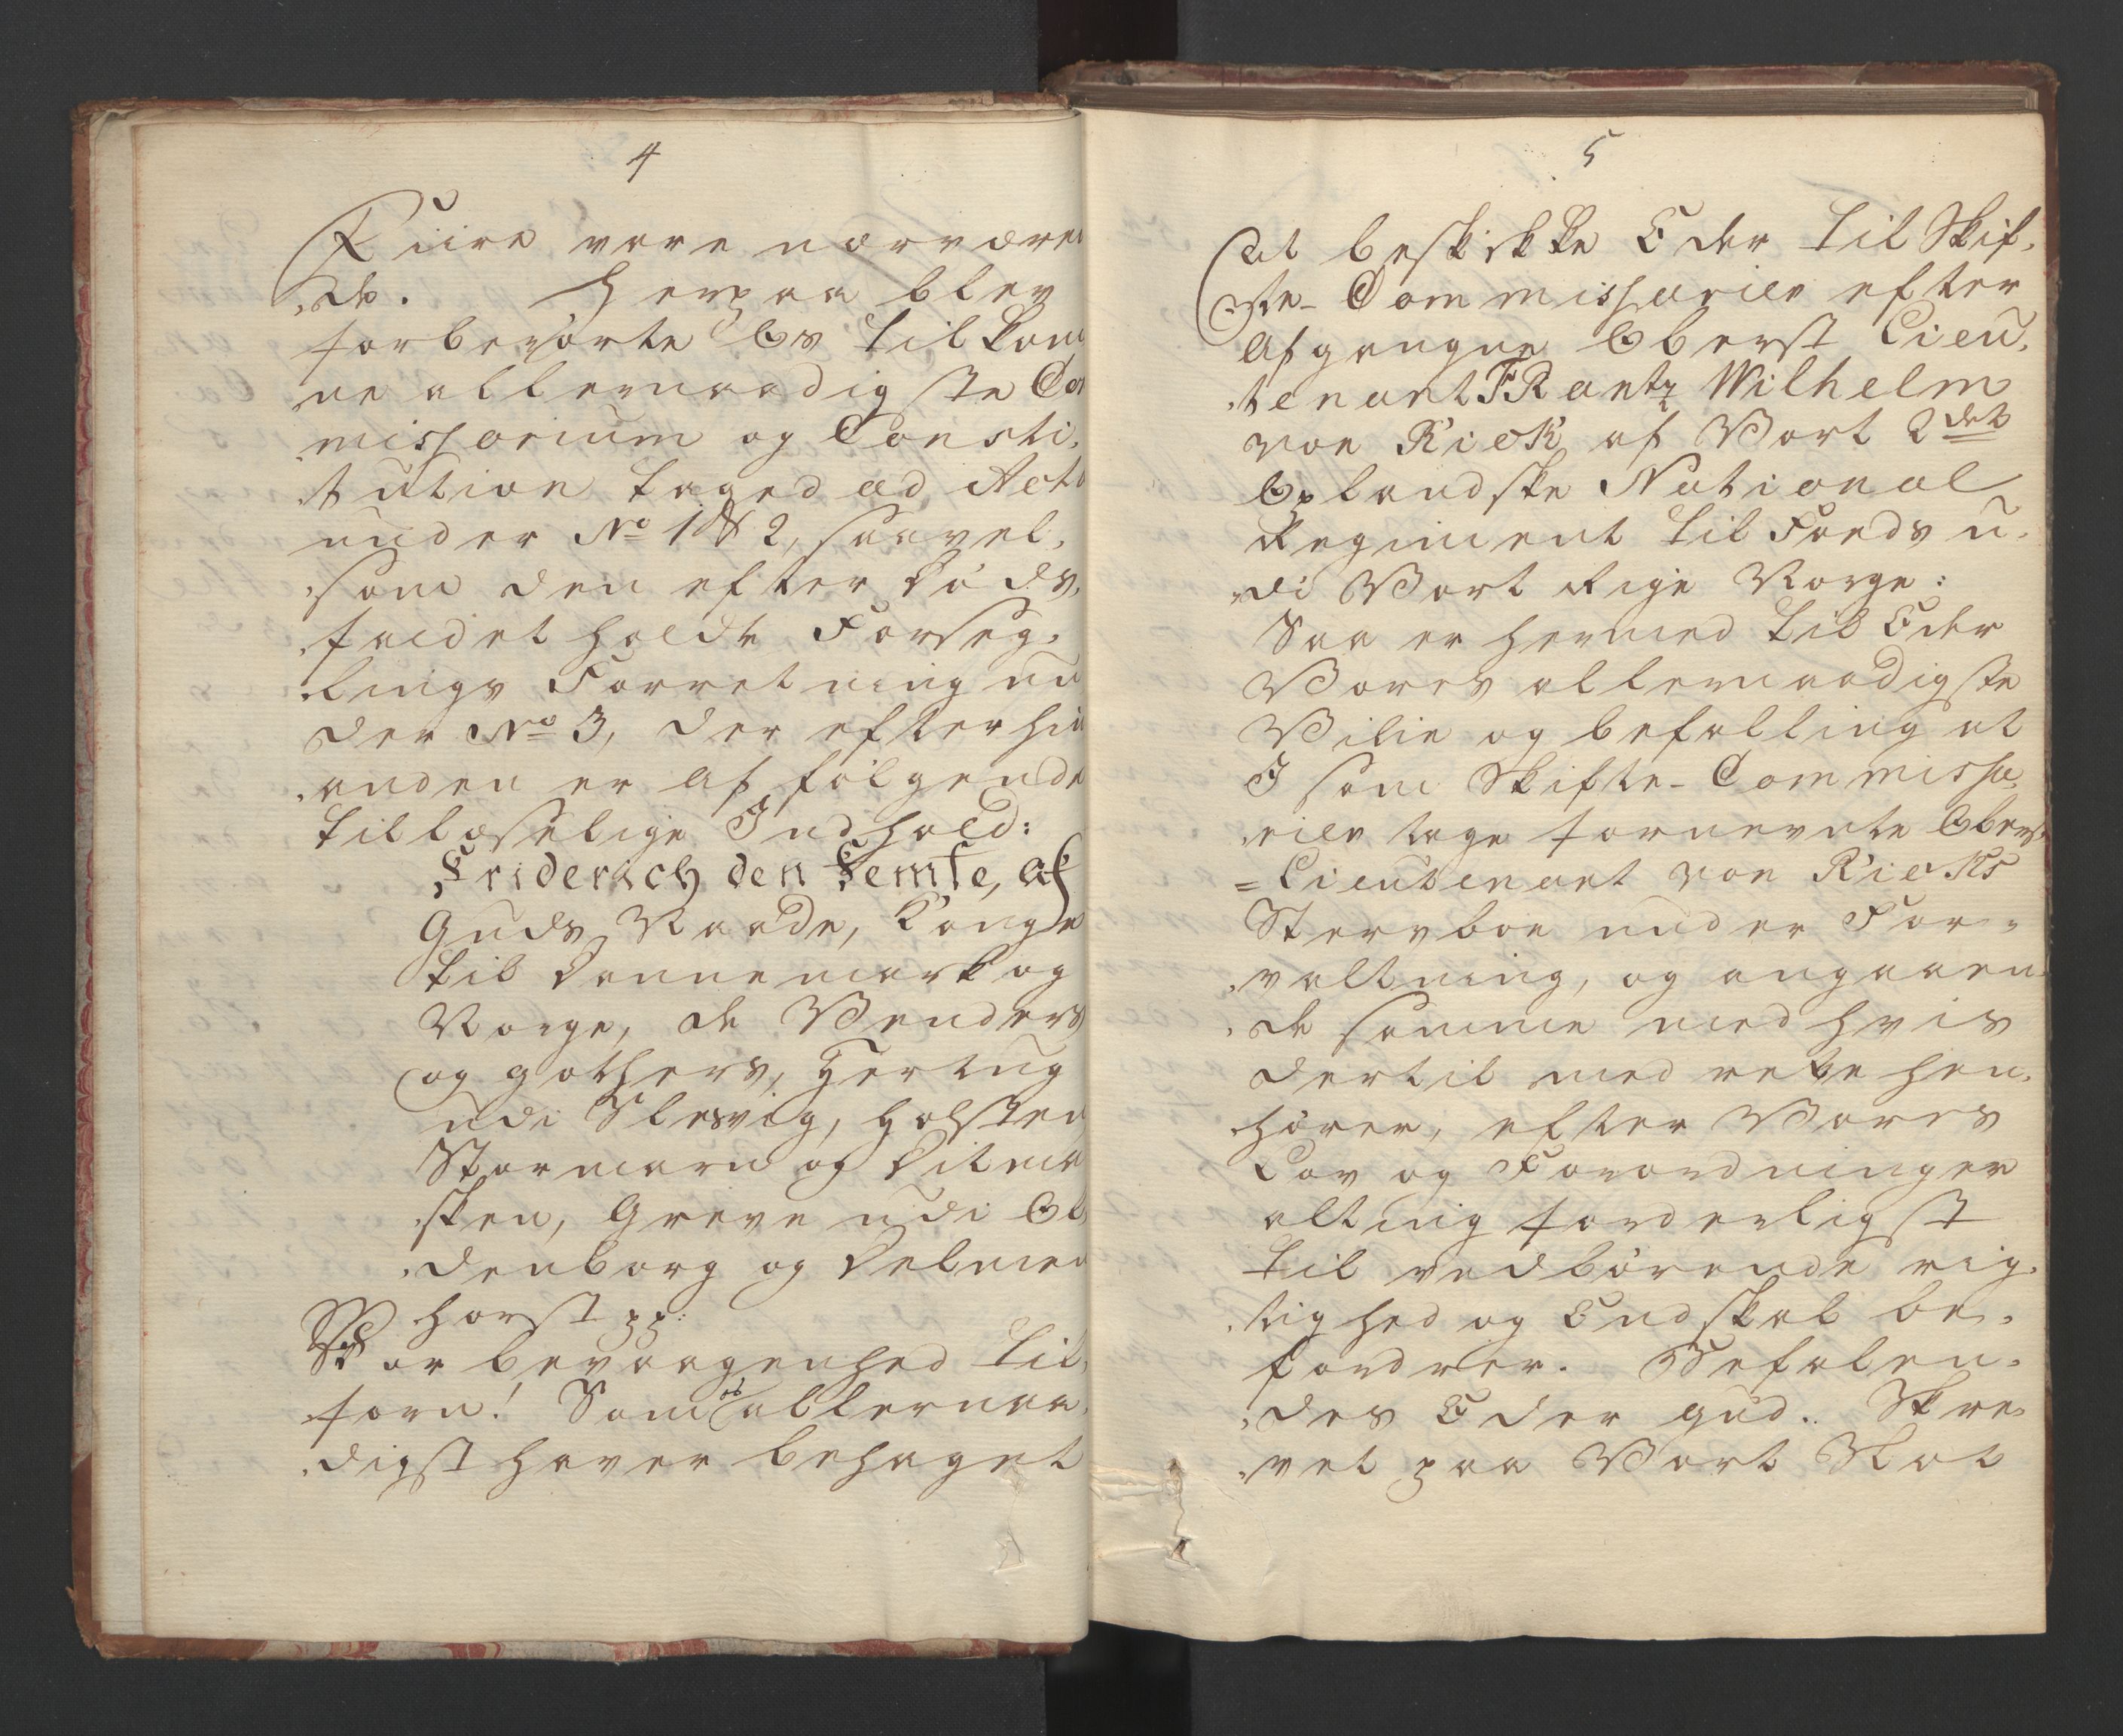 4
Fiire vare nærværen
de. Herpaa blev
forberørte Os tilkom
ne allernaadigste Com
missarium og Consti,
tution taged ad Acta
under No 1 & 2, saavel,
som den efter Døds,
faldet holdte Forseg,
lings Forretning un
der No 3, der efter hin
anden er af følgende
tillæselige Indhold:
Friderich den Femte, af
Guds Naade, Konge
til Dannemark og
Norge, de Venders
og Gothers, Hertug
udi Slesvig, Holsten,
Stormarn og Ditmar
sken, Greve udi Ol,
denborg og Delmen
horst pp:
Vor bevaagenhed til,
forn! Som os allernaa,
digst haver behaget
5
At beskikke Eder til Skif,
te- Commissarier efter
afgangne Oberst Lieu,
tenant FRantz Wilhelm
von RieK af Vort 2det
Oplandske National
Regiment til Foeds u,
di Vort Rige Norge:
Saa er hermed til Eder
Vores allernaadigste
Vilie og befalling at
I som Skifte- Commissa,
rier tage fornevnte Oberst
= Lieutenant von RieKs
Stervboe under For,
valtning, og angaaen,
de samme med hvis
dertil med rette hen,
hører, efter Vores
Lov og Forordninger
alting forderligst
til vedbørende rig,
tighed og Endskab be,
fordrer. Befalen,
des Eder Gud. Skre,
vet paa Vort Slot